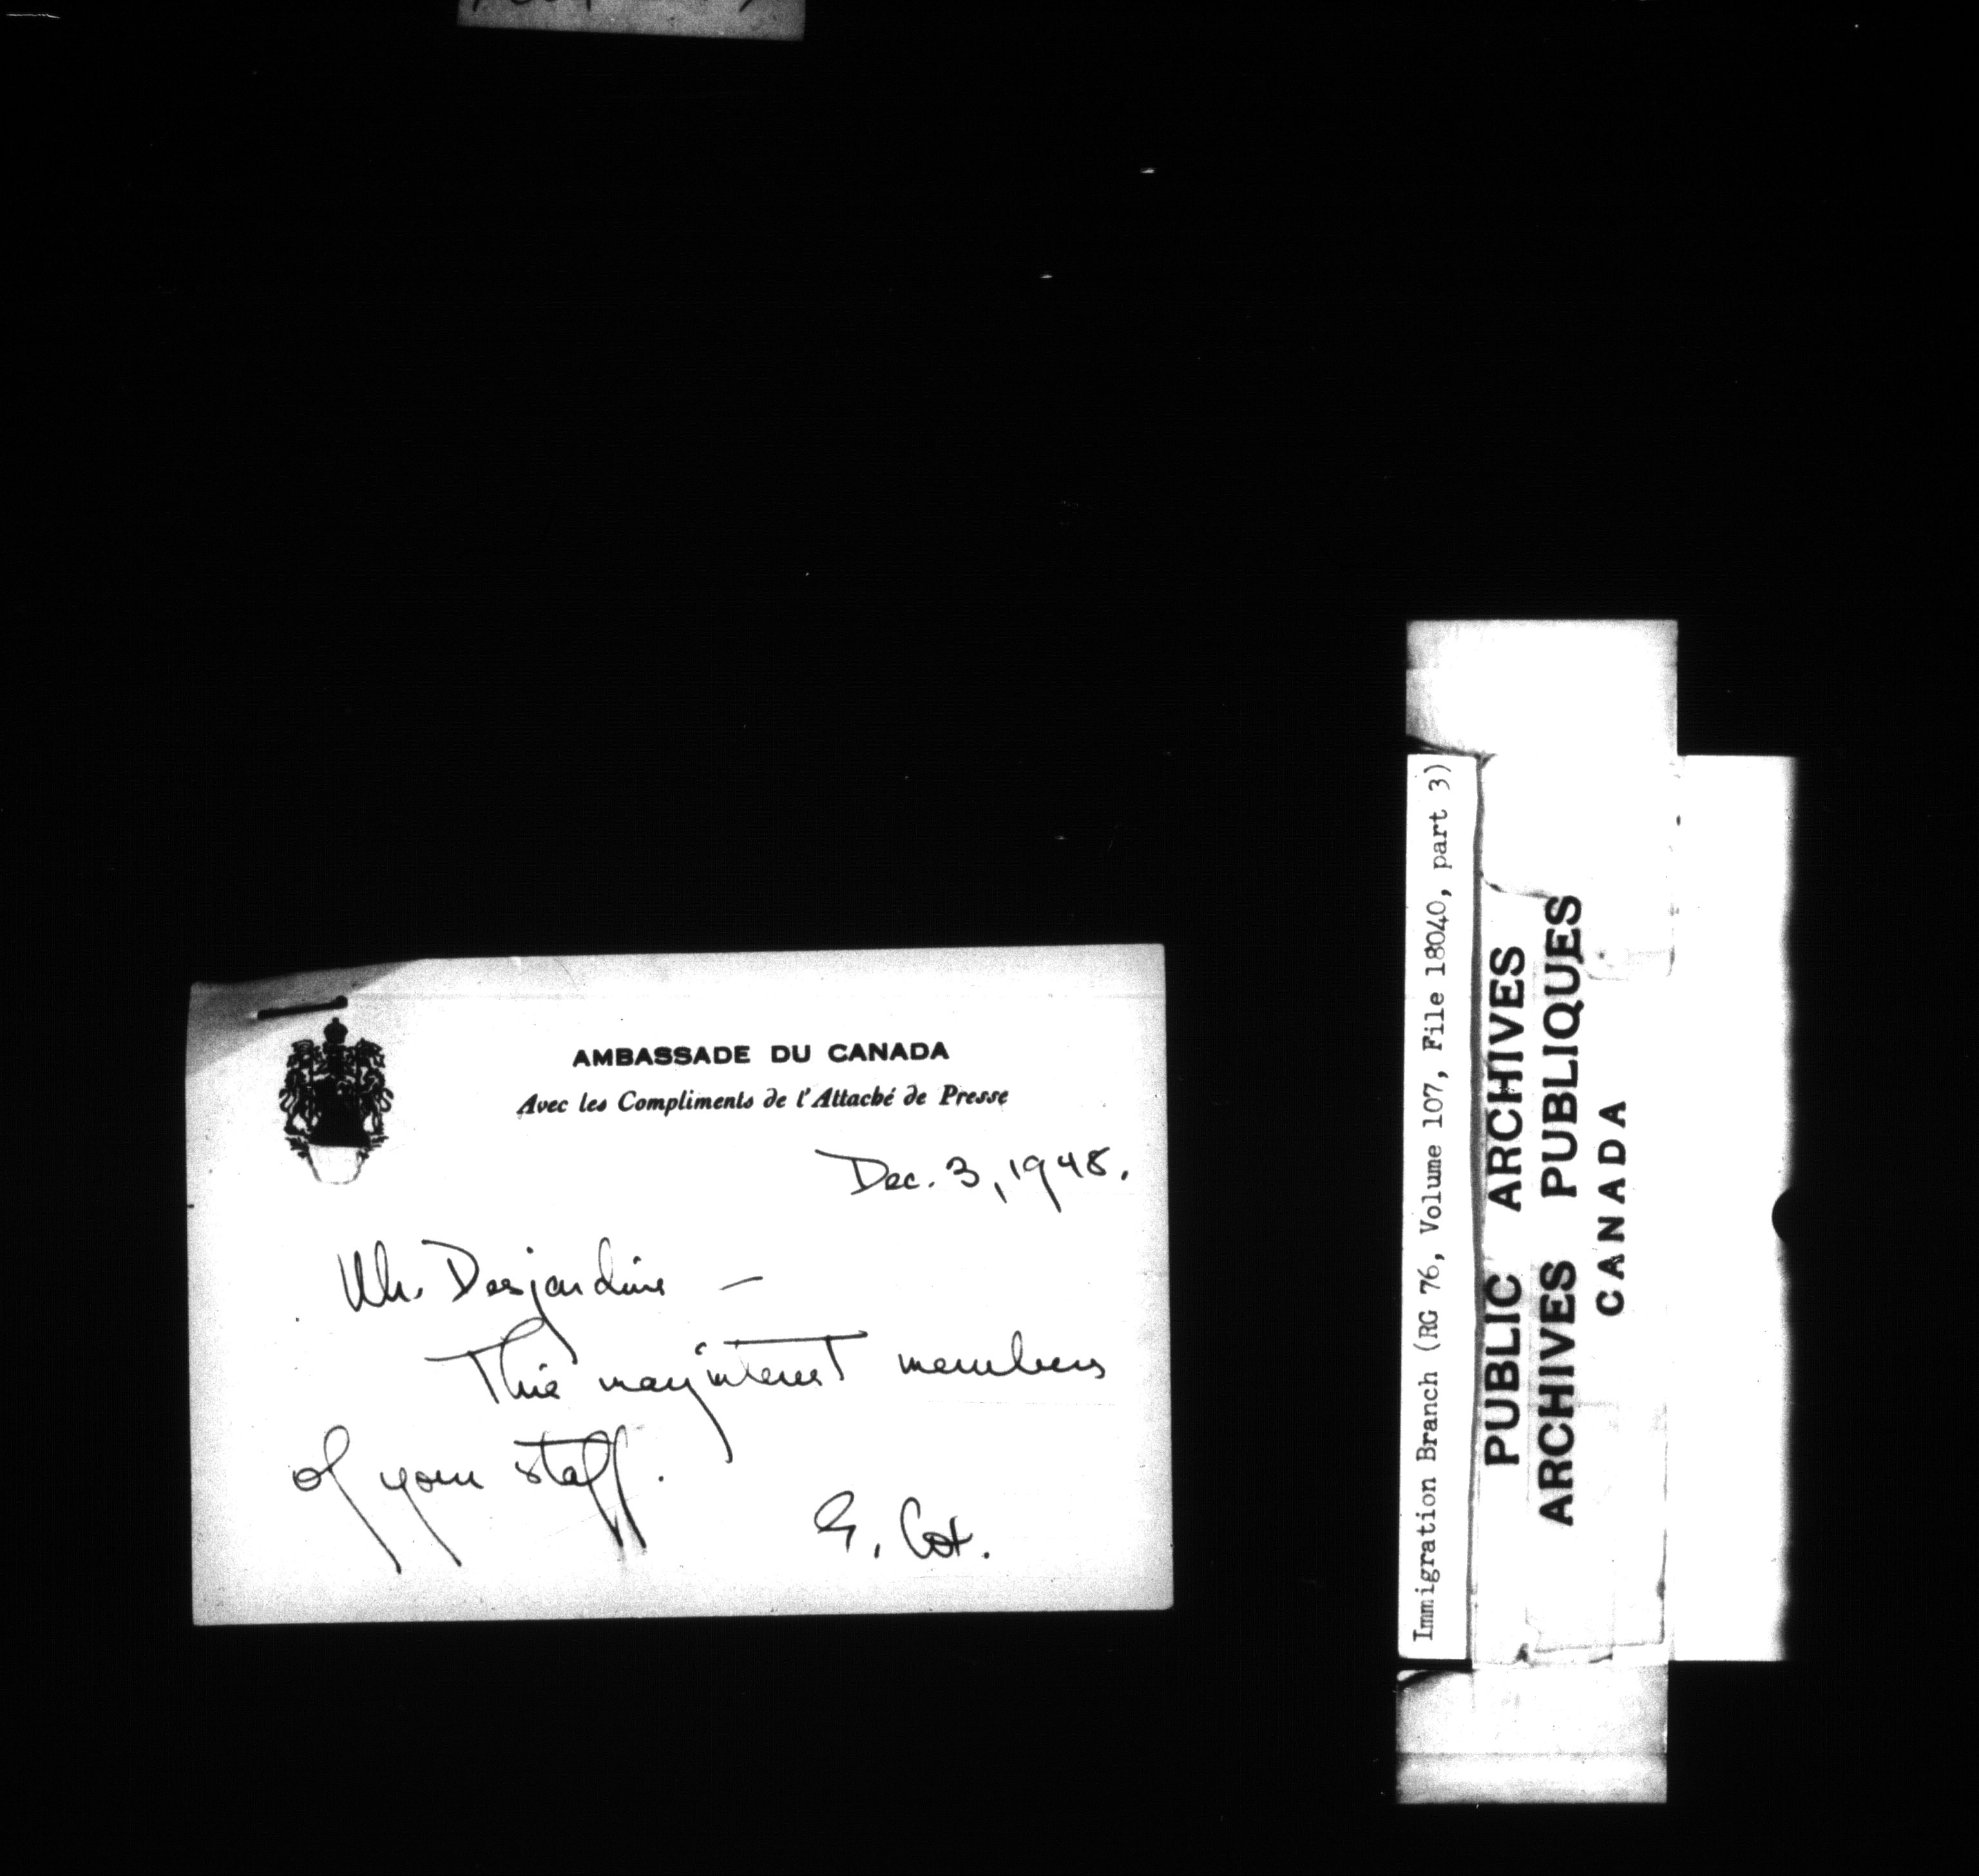 AMBASSADE DU CANADA
Avec les Compliments de l'Attaché de Presse
Dec. 3, 1948.
Mr. Desjardins —
This may interest members
of your staff.
E. Cot.
Immigration Branch (RG 76, Volume 107, File 18040, part 3)
PUBLIC ARCHIVES
ARCHIVES PUBLIQUES
CANADA